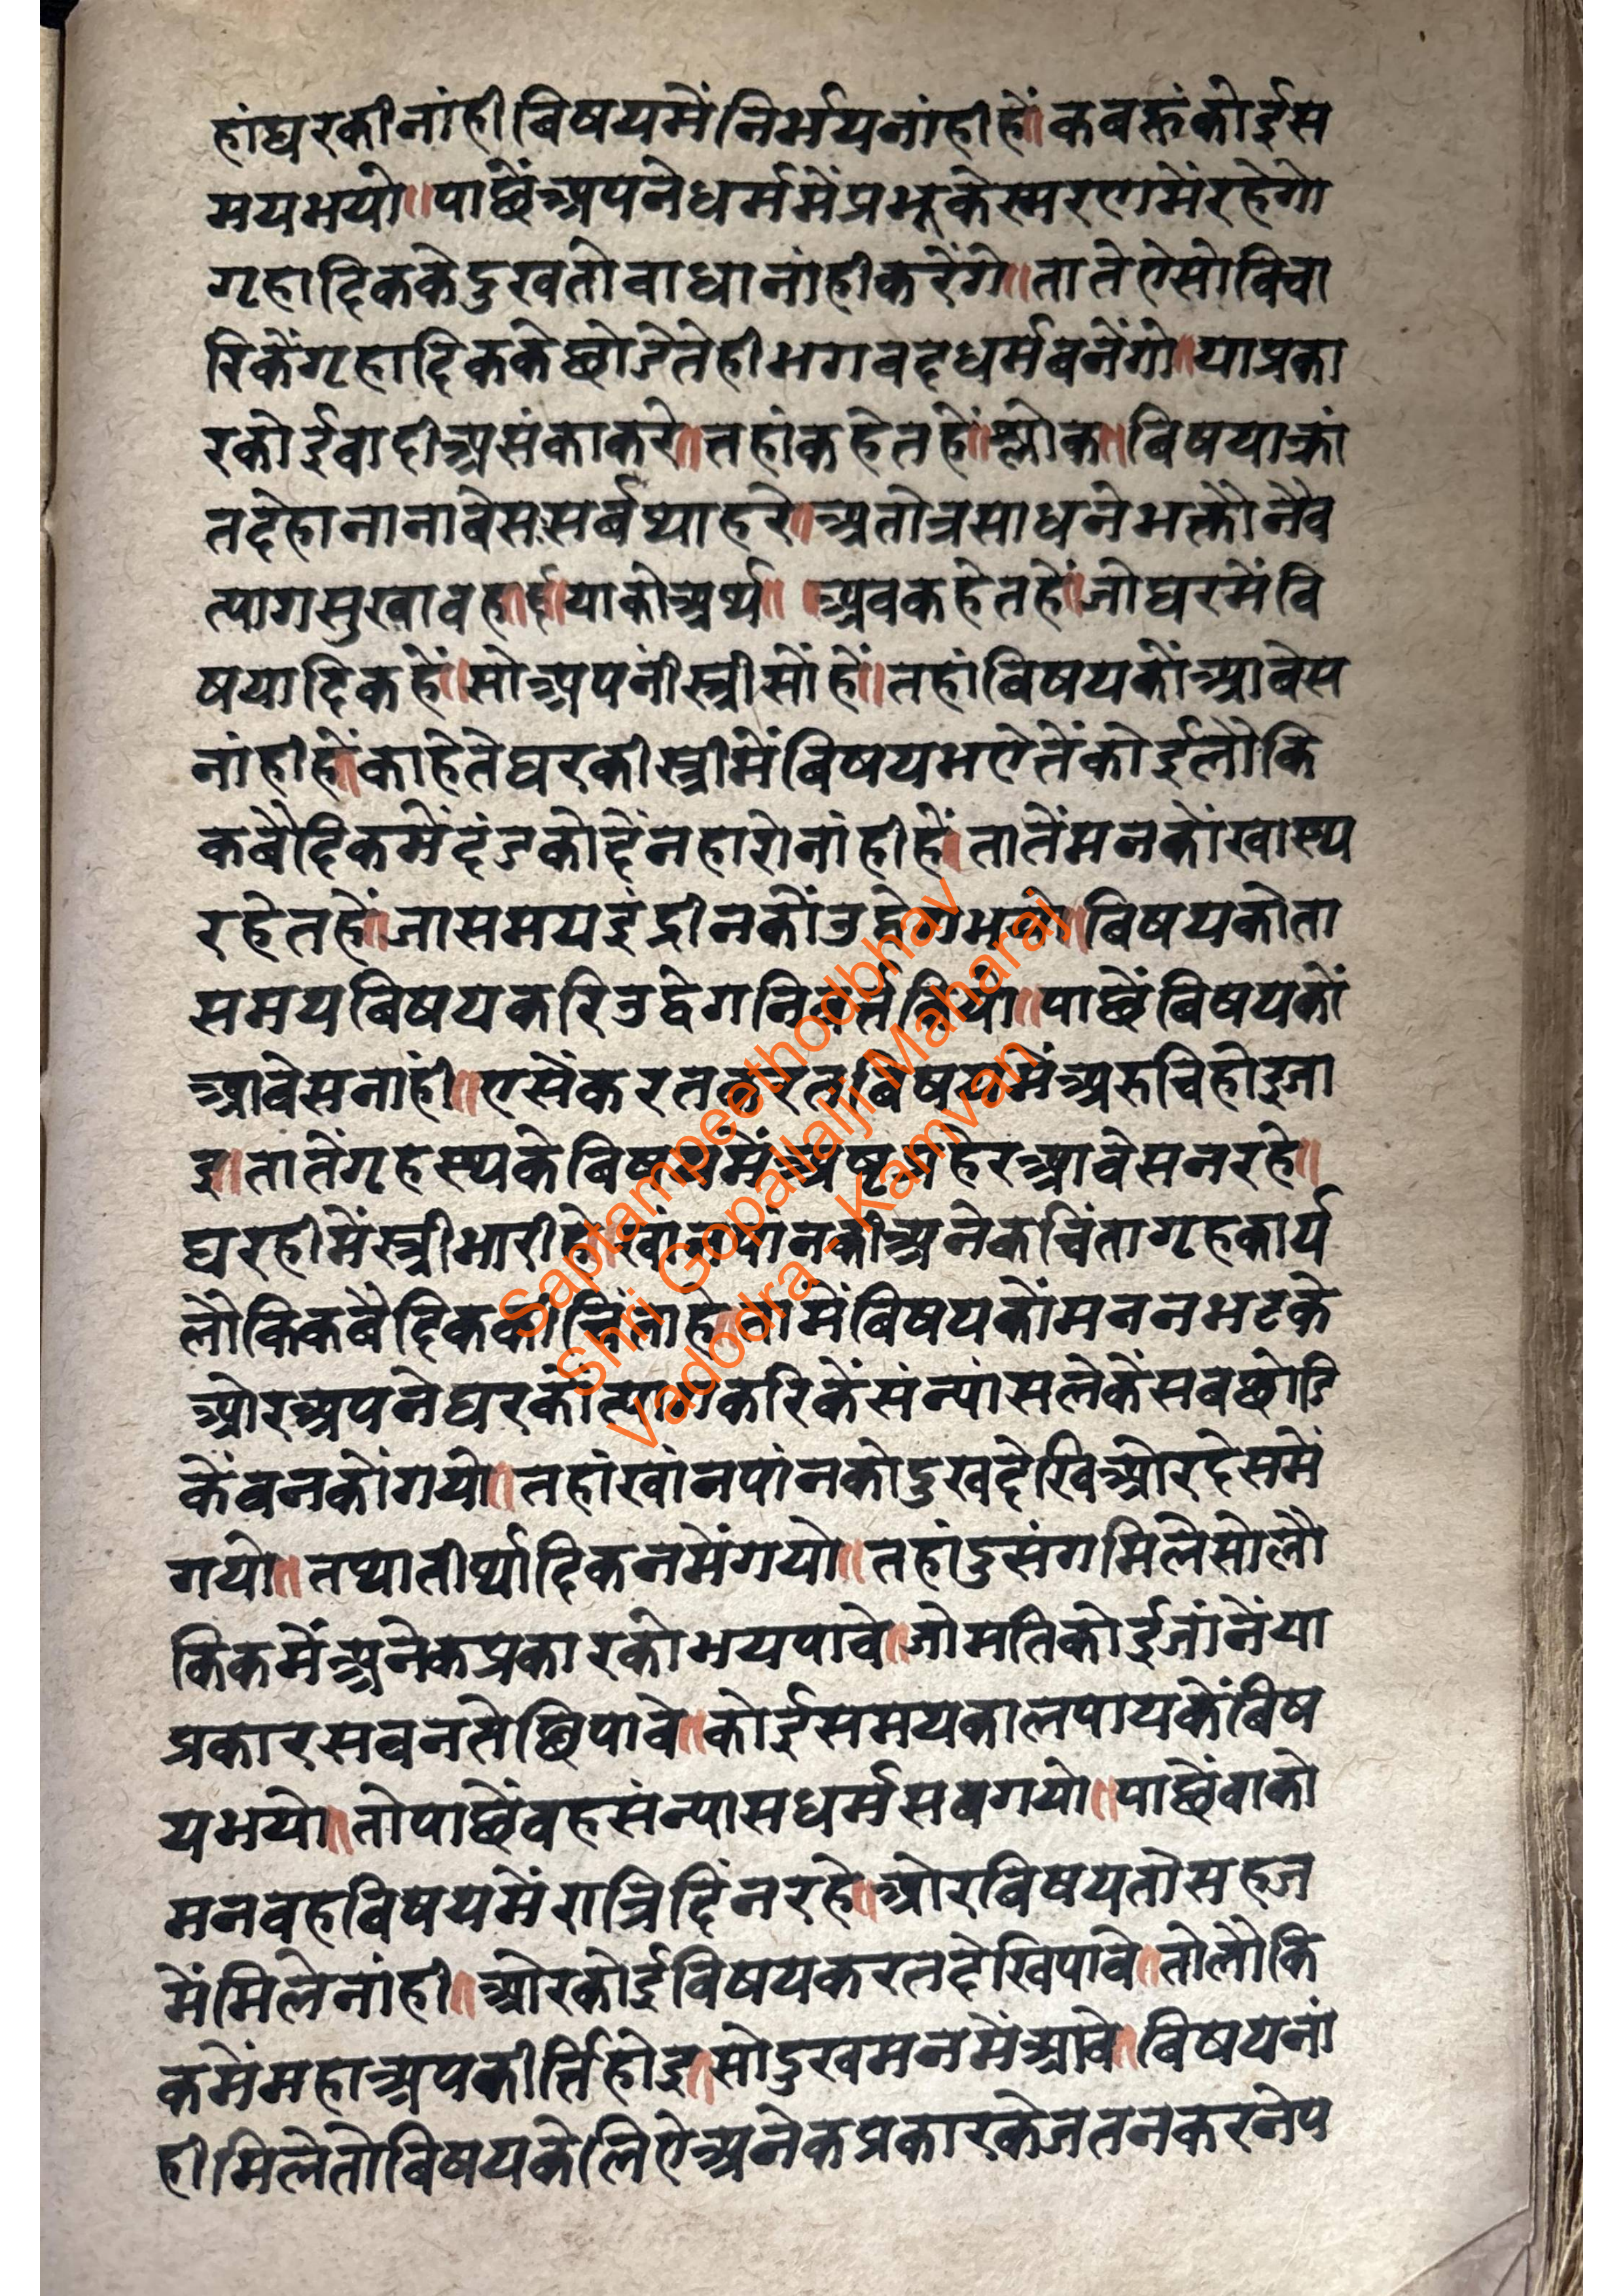 हांघरकीनांहीबिषयमेंनिर्भयनांहीहें॥कबहुंकोईस
मयभयो॥पाछेंअपनेधर्ममेंप्रभूकेस्मरणमेंरहेगो
गृहादिककेदुखतोबाधानांहीकरेंगे॥तातेऐसोविचा
रिकेंगृहादिककेछोडेतेहीभगवदधर्मबनेंगो॥याप्रका
रकोईवादीअसंकाकरे॥तहांकहेतहें॥श्लोक॥बिषयाक्रां
तदेहानानाबेसःसर्बथाहरे॥अतोत्रसाधनेभक्तौनैव
त्यागसुखावह॥६॥याकोअर्थ॥ ॥अवकहेतहें॥जोघरमेंवि
षयादिकहें॥सोअपनीस्त्रीसोंहें॥तहांविषयकोंआबेस
नांहीहें॥काहेतेघरकीस्त्रीमेंबिषयभऐतेंकोईलौकि
कबैदिकमेंदंडकोदेंनहारोनांहीहें॥तातेंमनकोंस्वास्थ
रहेतहें॥जासमयइंद्रीनकोंउद्वेगभयो॥बिषयकोता
समयबिषयकरिउद्वेगनिवर्तकियो॥पाछेंबिषयकों
आवेसनाही॥एसेंकरतकरतबिषयमेंअरुचिहोइजा
इ॥तातेंगृहस्थकेबिषयमेंअष्टप्रहेरआवेसनरहे॥
घरहीमेंस्त्रीभारीहे॥खांनपांनकीअनेकचिंतागृहकार्य
लौकिकबैदिककीचिंताहे॥तामेंबिषयकोंमननभटके
ओरअपनेघरकोत्यागकरिकेंसंन्यांसलेकेंसबछोडि
केंवनकोंगयो॥तहांखांनपांनकोदुखदेखिओरदेसमें
गयो॥तथातीर्थादिकनमेंगयो॥तहांदुसंगमिलेसोलौ
किकमेंअनेकप्रकारकोभयपावे॥जोमतिकोईजांनेंया
प्रकारसबनतेछिपावे॥कोईसमयकालपायकेंबिष
यभयो॥तोपाछेंवहसंन्यासधर्मसबगयो॥पाछेंवाको
मनवहबिषयमेंरात्रिदिंनरहे॥ओरबिषयतोसहज
मेंमिलेनांही॥ओरकोईविषयकरतदेखिपावे॥तोलौकि
कमेंमहाअपकीर्तिहोइ॥सोदुखमनमेंआवे॥बिषयनां
हीमिलेतोबिषयकेलिऐअनेकप्रकारकेजतनकरनेप
Saptampeethodbhav
Shri Gopallalji Maharaj
Vadodra - Kamvan